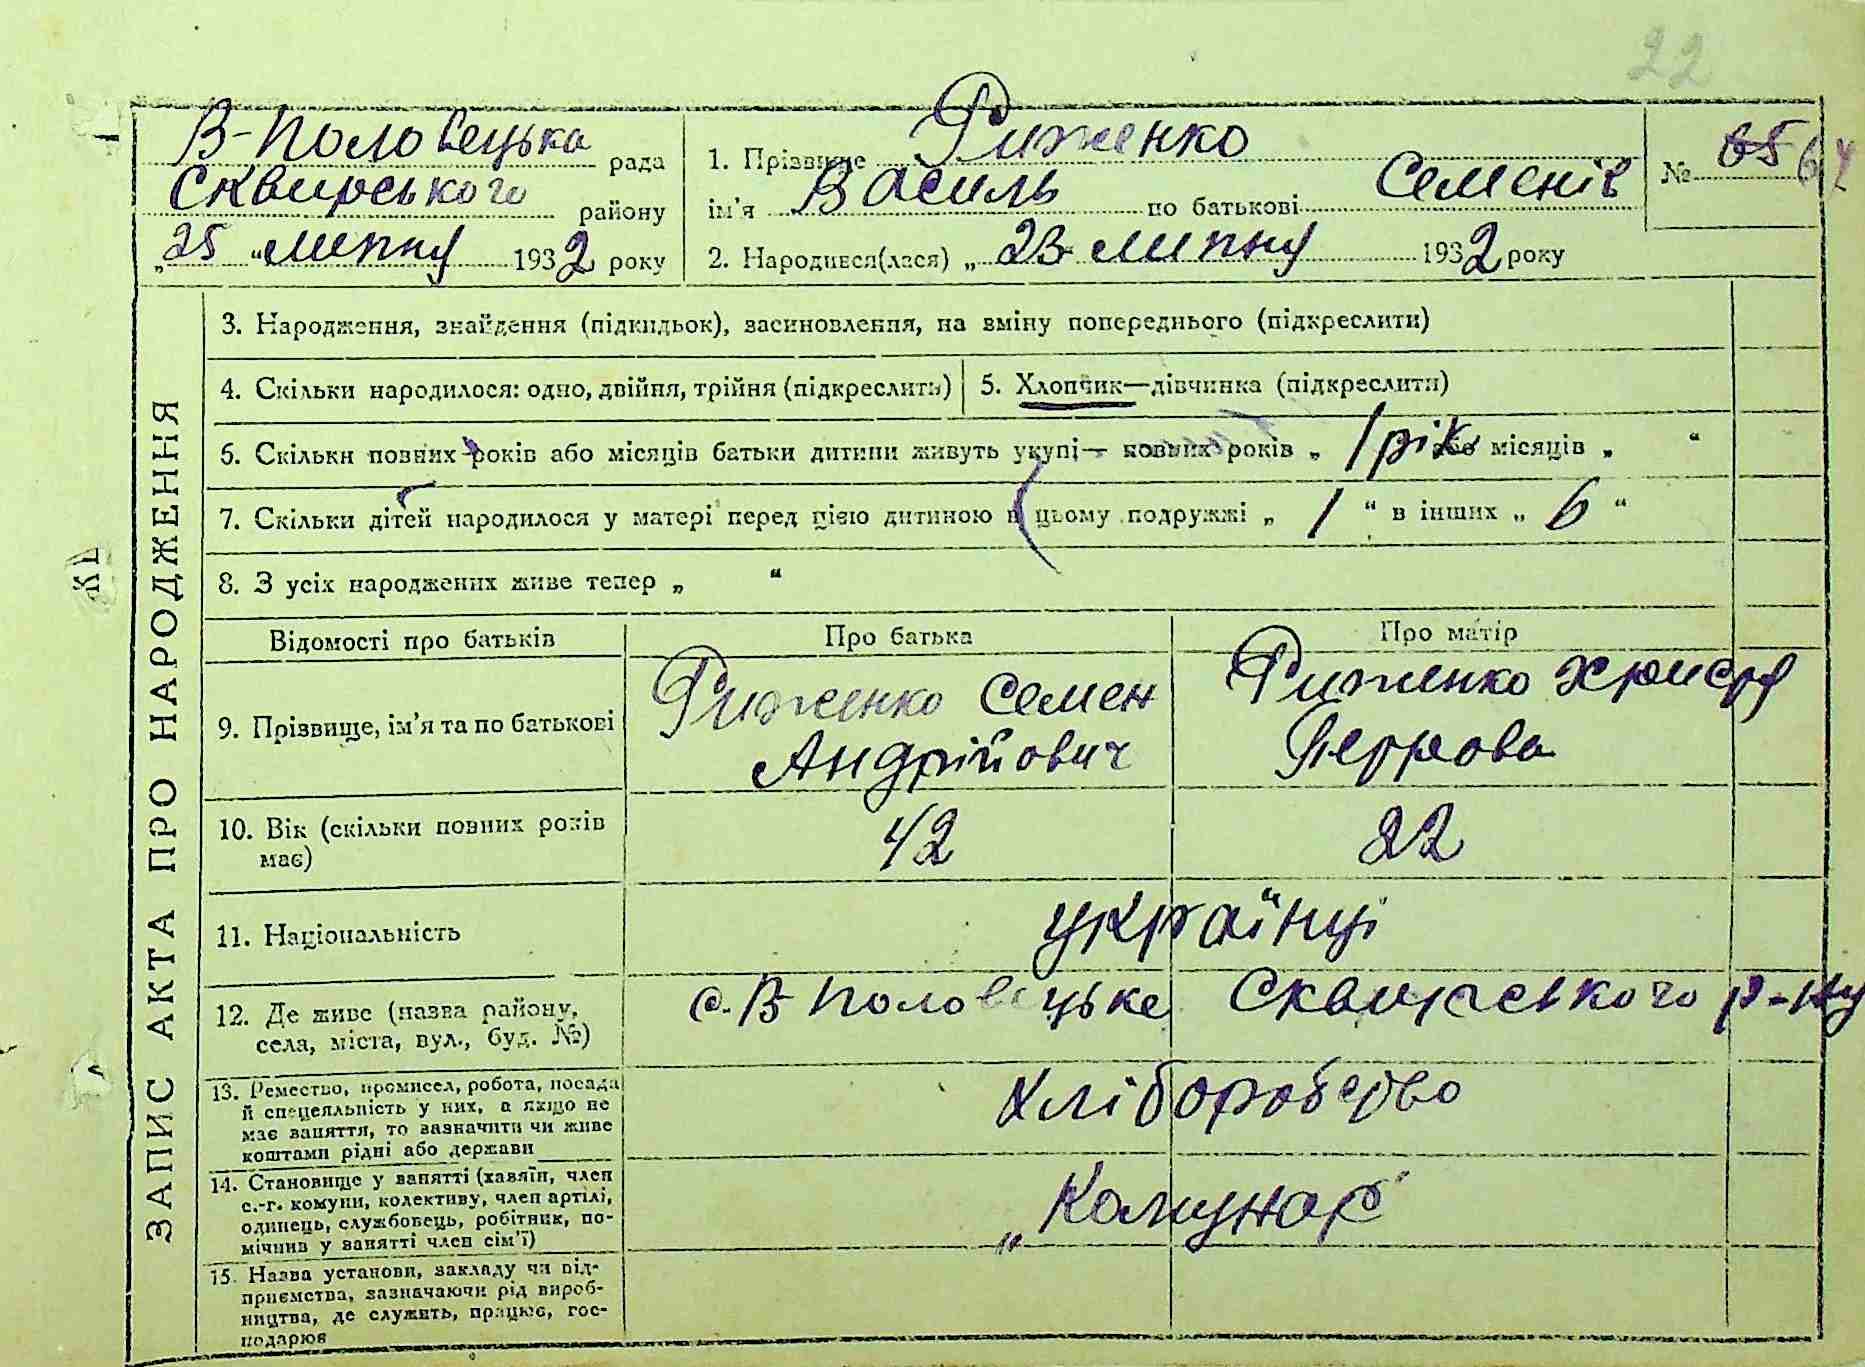 22
В-Половецька рада
Сквирського району
„25 “ липня 1932 року
1. Прізвище Риженко
ім'я Василь по батькові Семенів
2. Народився(лася) „ 23 липня 1932 року
№ 65 64
ЗАПИС АКТА ПРО НАРОДЖЕННЯ
3. Народження, знайдення (підкидьок), засиновлення, на зміну попереднього (підкреслити)
4. Скільки народилося: одно, двійня, трійня (підкреслить)
5. Хлопчик—дівчинка (підкреслити)
6. Скільки повних років або місяців батьки дитини живуть укупі — повних років „ 1 рік або місяців „ “
7. Скільки дітей народилося у матері перед цією дитиною в цьому подружжі „ 1 “ в інших „ 6 “
8. З усіх народжених живе тепер „ “
Відомості про батьків Про батька Про матір
9. Прізвище, ім'я та по батькові
Риженко Семен
Андрійович
Риженко Христя
Петрова
10. Вік (скільки повних років
має)
42 22
11. Національність українці
12. Де живе (назва району,
села, міста, вул., буд. №)
с. В-Половецьке Сквирського р-ну
13. Ремество, промисел, робота, посада
й спецеяльність у них, а якщо не
має заняття, то зазначити чи живе
коштами рідні або держави
Хліборобство
14. Становище у занятті (хазяїн, член
с.-г. комуни, колективу, член артілі,
одинець, службовець, робітник, по-
мічнив у занятті член сім'ї)
„Комунар“
15. Назва установи, закладу чи під-
приємства, зазначаючи рід вироб-
ництва, де служить, працює, гос-
подарює